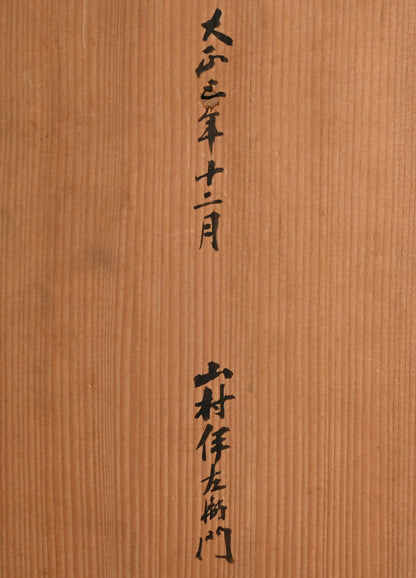 大正三年十二月
山村伊左衛門